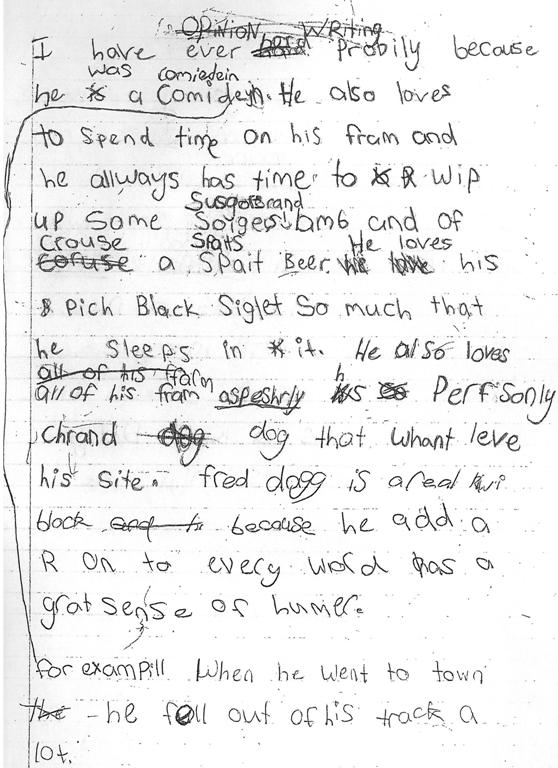 OPINION WRiting
I have ever herd Probily because
was comiedein
he is a Comideyn. He also loves
to Spend time on his fram and
he allways has time to R Wip
Susgors and
up Some Soiges lamb and of
Crouse Spaits He loves
Corouse a Spait Beer. he love his
Pich Black Siglet So much that
he Sleeps in it. He also loves
all of his ffarm
all of his fram aspeshrly his Perfsonly
Chrand dog dog that whant leve
his Site. fred dagg is a real kwi
block and h because he add a
R On to every word has a
grat sense of humer.
for exampill When he went to town
the - he fell out of his track a
lot.